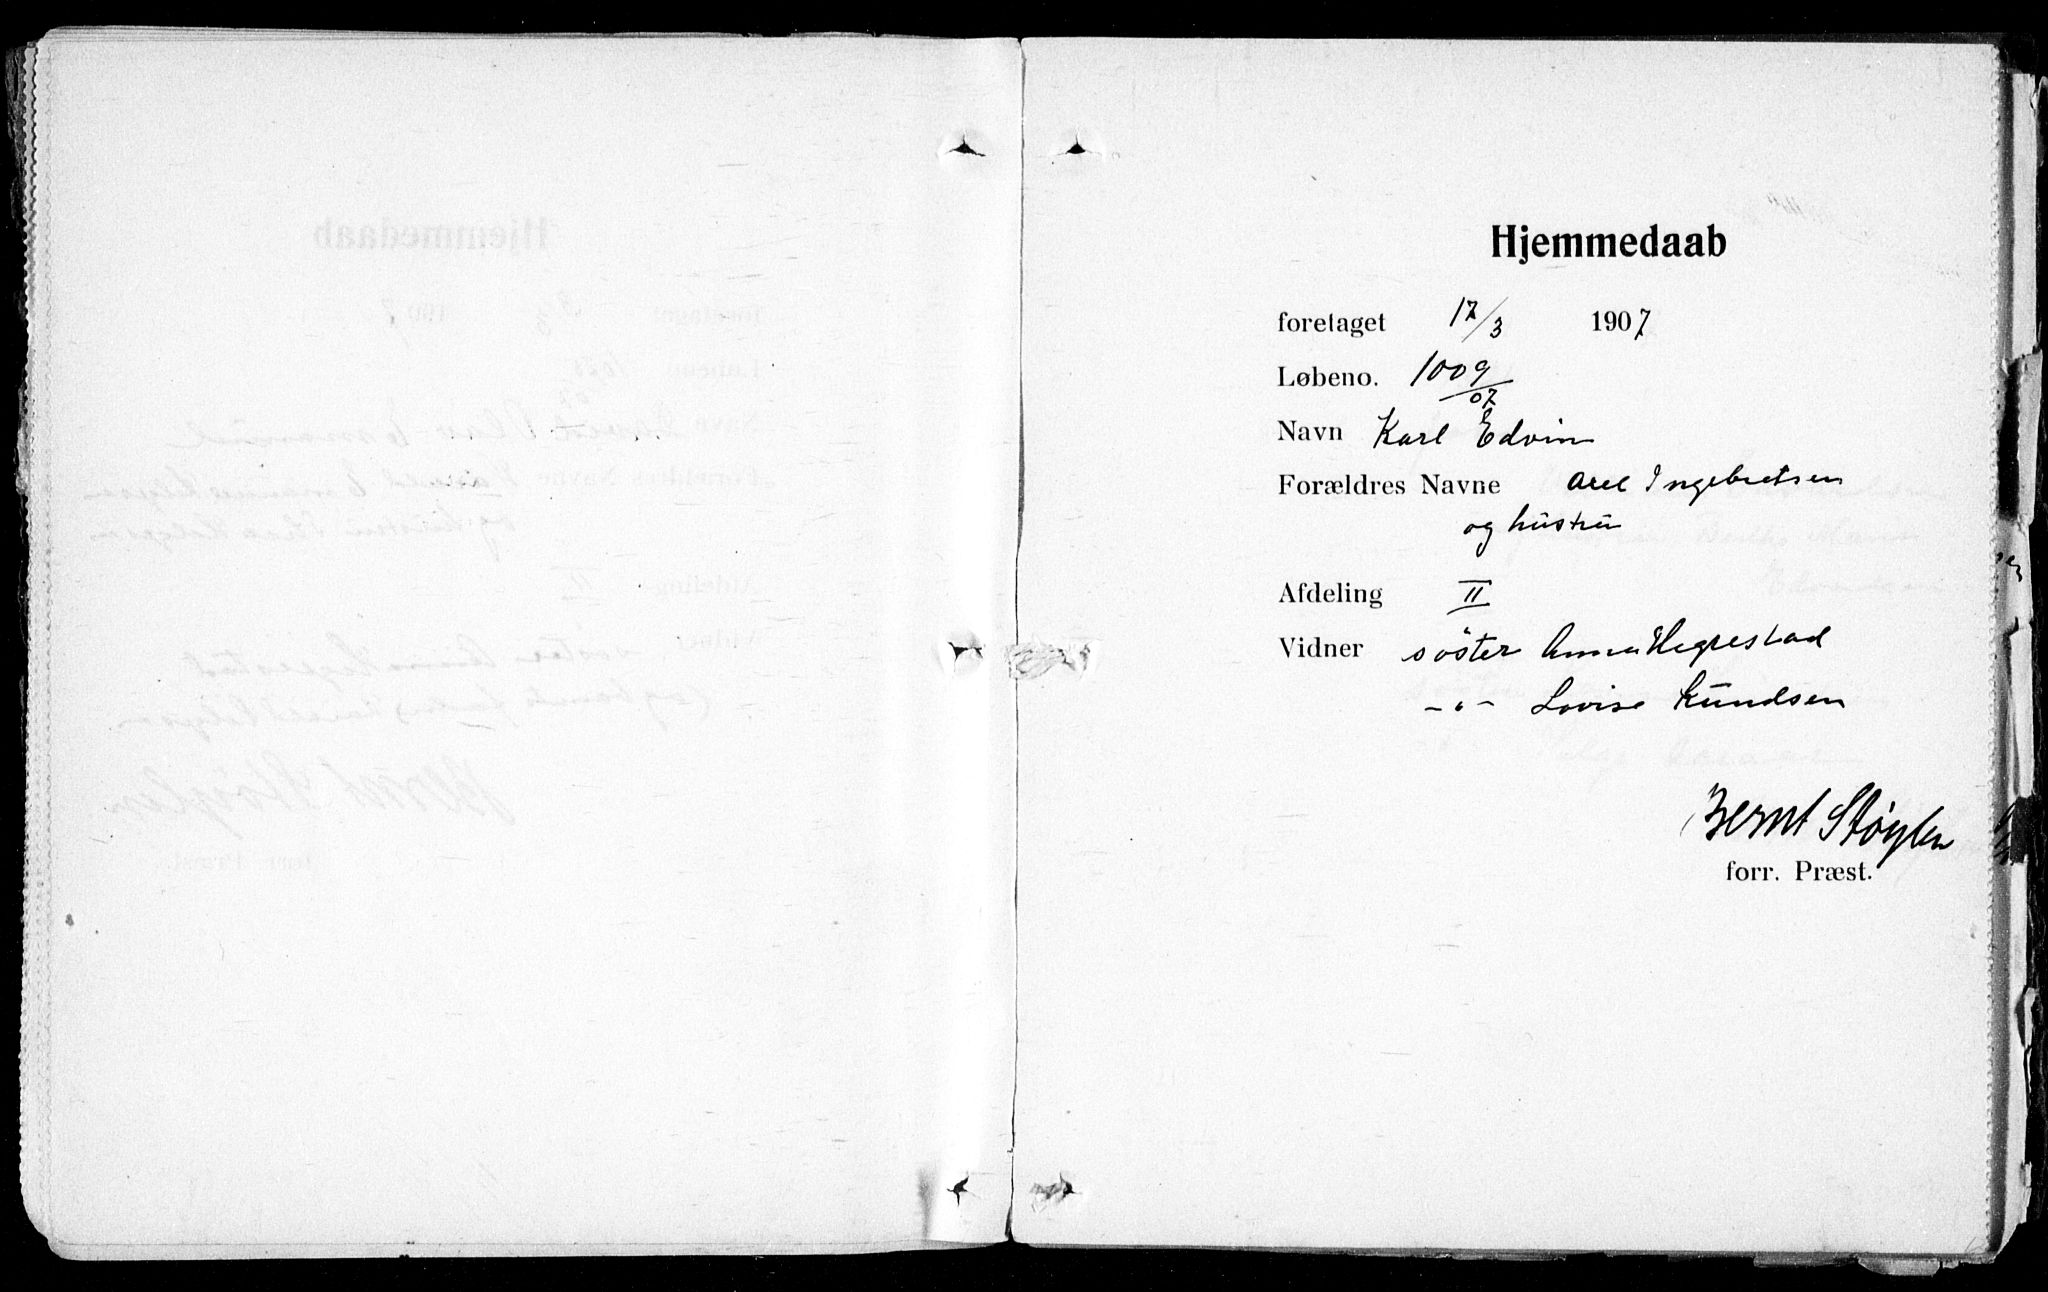 Hjemmedaab
foretaget 17/3 1907
Løbeno. 1009/07
Navn Karl Edvin
Forældres Navne Axel Ingebretsen
og hustru
Afdeling II
Vidner söster Anna Hegrestad
-"- Lovise Kundsen
Bernt Støylen
forr. Præst.